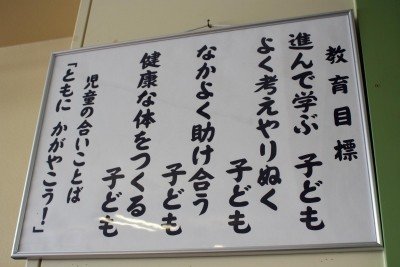 教育目標
進んで学ぶ 子ども
よく考えやりぬく 子ども
なかよく助け合う 子ども
健康な体をつくる 子ども
児童の合いことば
「ともに かがやこう！」